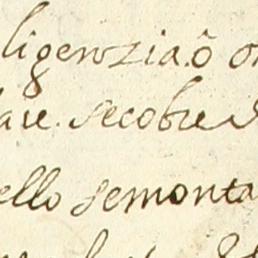 ligenzia ô o
aue. secobre
ello semonta